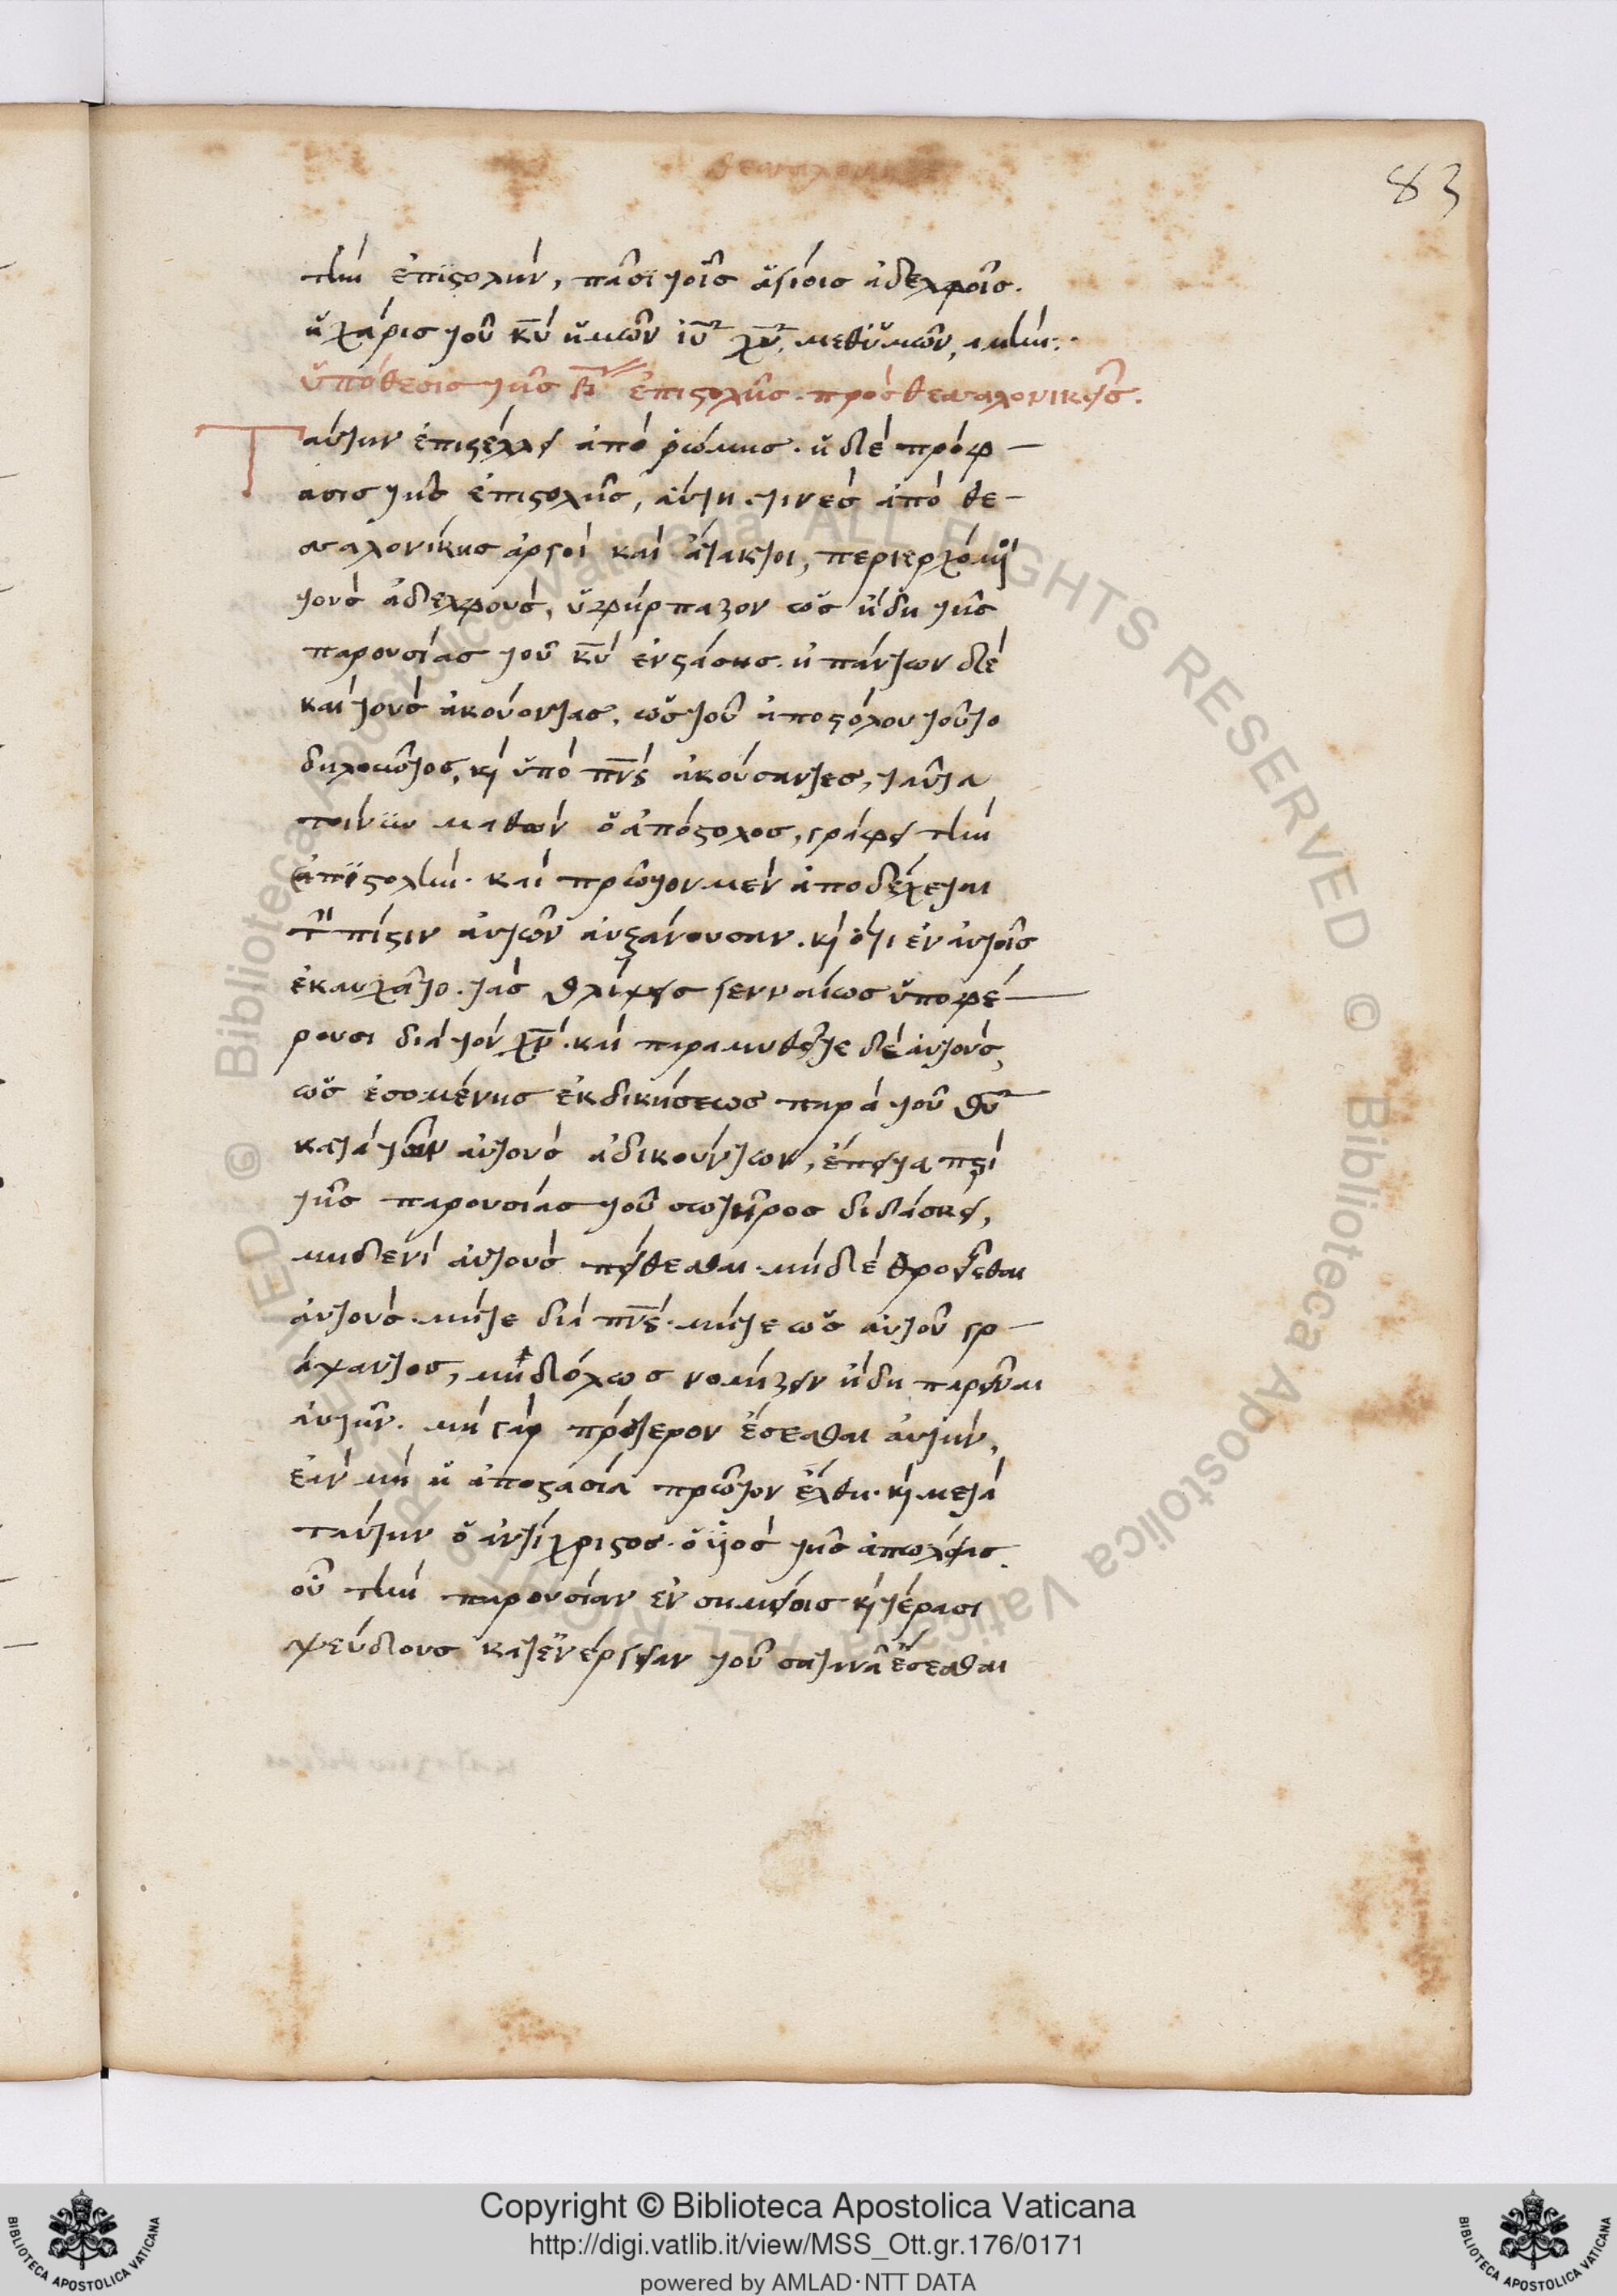 83
τὴν ἐπιστολὴν, πᾶσι τοῖς ἁγίοις ἀδελφοῖς.
ἡ χάρις τοῦ κυ ἡμῶν ἰυ χυ, μεθ' ὑμῶν, ἀμήν:·
ὑπόθεσις τῆς β ἐπιστολῆς πρὸς θεσσαλονικεῖς.
Ταύτην ἐπιστέλλει ἀπὸ ῥώμης. ἡ δὲ πρόφ
ασις τῆς ἐπιστολῆς, αὕτη. τινὲς ἀπὸ θε
σσαλονίκης ἀργοὶ καὶ ἄτακτοι, περιερχόμοι
τοὺς ἀδελφοὺς, ὑφήρπαζον ὡς ἤδη τῆς
παρουσίας τοῦ κυ ἐνστάσης. ἠπάντων δὲ
καὶ τοὺς ἀκούοντας, ὡς τοῦ ἀποστόλου τοῦτο
δηλοῦντος, κὶ ὑπὸ πνς ἀκούσαντες, ταῦτα
τοίνυν μαθὼν ὁ ἀπόστολος, γράφει τὴν
ἐπιστολὴν. καὶ πρῶτον μὲν ἀποδέχεται
τὴν πίστιν αὐτῶν αὐξάνουσαν. κὶ ὅτι ἐν αὐτοῖς
ἐκαυχᾶτο. τὰς θλίψεις γενναίως ὑποφέ
ρουσι διὰ τὸν χν. καὶ παραμυθεῖτε δὲ αὐτοὺς,
ὡς ἐσομένης ἐκδικήσεως παρὰ τοῦ θυ
κατὰ τῶν αὐτοὺς ἀδικούντων, ἔπειτα περὶ
τῆς παρουσίας τοῦ σωτῆρος διδάσκει,
μηδενὶ αὐτοὺς πείθεσθαι. μὴ δὲ θροεῖσθαι
αὐτοὺς. μήτε διὰ πνς. μήτε ὡς αὐτοῦ γρ
άψαντος, μὴδ' ὅλως νομίζειν ἤδη παρεῖναι
αὐτὴν. μὴ γὰρ πρότερον ἔσεσθαι αὐτὴν,
ἐὰν μὴ ἡ ἀποστασία πρῶτον ἔλθη. κὶ μετὰ
ταύτην ὁ ἀντίχριστος. ὁ ὑιὸς τῆς ἀπωλείας.
οὗ τὴν παρουσίαν ἐν σημείοις κὶ τέρασι
ψεύδους κατ' ἐνέργειαν τοῦ σατανᾶ ἔσεσθαι
Copyright © Biblioteca Apostolica Vaticana
http://digi.vatlib.it/view/MSS_Ott.gr.176/0171
powered by AMLAD·NTT DATA
BIBLIOTECA APOSTOLICA VATICANA
BIBLIOTECA APOSTOLICA VATICANA